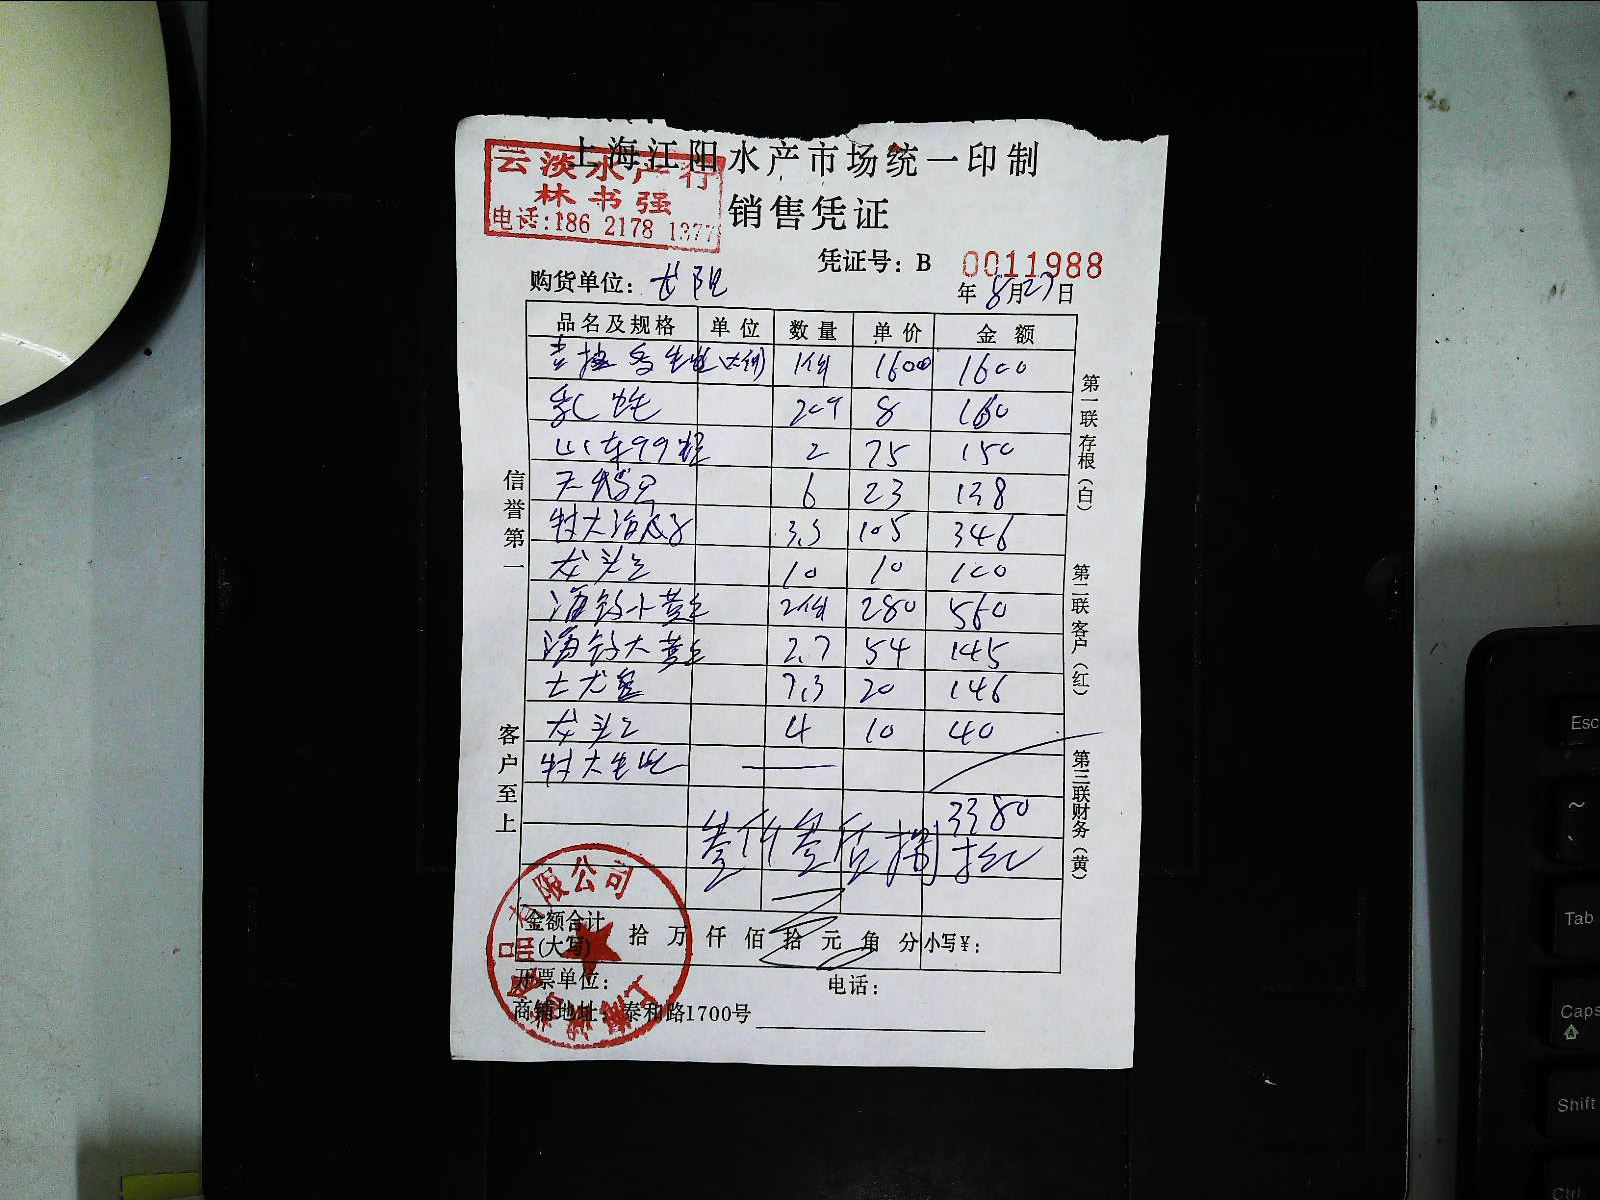 上海江阳水产市场统一印制
云淡水产行
林书强
电话:186 2178 1377
销售凭证
凭证号: B 0011988
购货单位:
年 8月27日
品名及规格 单位 数量 单价 金额
1件 1600 1600
乳蛏 20 8 160
山东99 2 75 150
天鹅 6 23 138
特大 3.3 105 346
龙头 10 10 100
海钓小黄 2件 280 560
海钓大黄 2.7 54 145
7.3 20 146
龙头 4 10 40
特大生 —
3380
叁仟叁佰捌拾
金额合计(大写) 拾 万 仟 佰 拾 元 角 分 小写¥:
开票单位: 电话:
商铺地址: 泰和路1700号
信誉第一 客户至上
第一联存根(白) 第二联客户(红) 第三联财务(黄)
有限公司
Esc
~
、
Tab
Caps
Shift
Ctrl